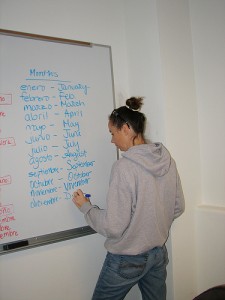 Months
enero - January
febrero - Feb
marzo - March
abril - April
mayo - May
junio - June
julio - July
agosto - August
septiembre - September
octubre - October
noviembre - November
diciembre - D